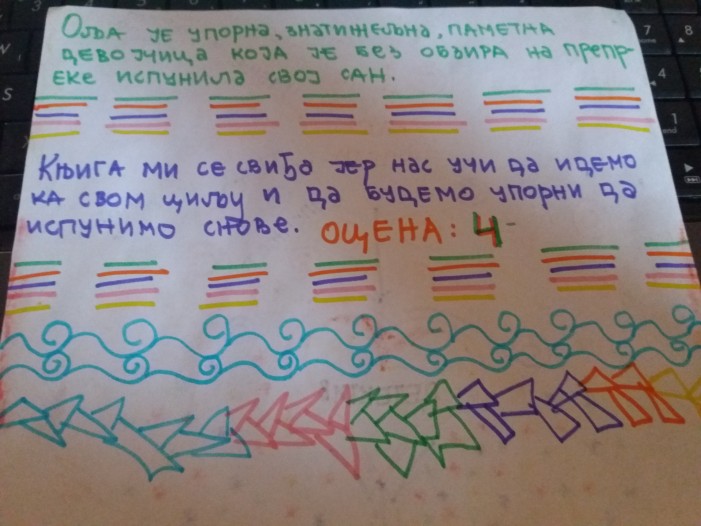 Оља је упорна, знатижељна, паметна
девојчица која је без обзира на препр-
еке испунила свој сан.
Књига ми се свиђа јер нас учи да идемо
ка свом циљу и да будемо упорни да
испунимо снове. ОЦЕНА: 4-